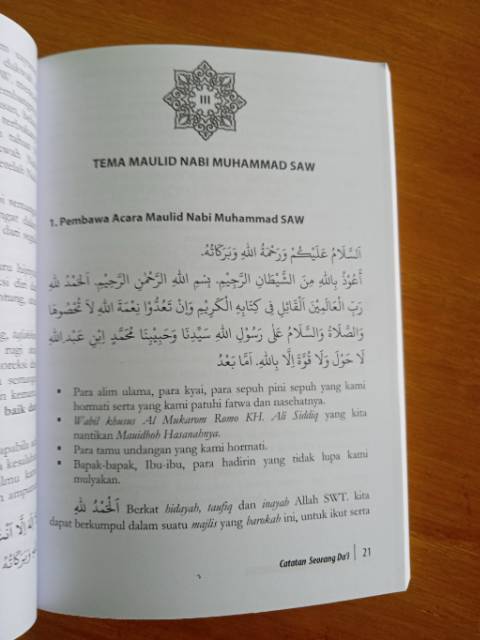 III
TEMA MAULID NABI MUHAMMAD SAW
1. Pembawa Acara Maulid Nabi Muhammad SAW
اَلسَّلَامُ عَلَيْكُمْ وَرَحْمَةُ اللهِ وَبَرَكَاتُهُ.
أَعُوْذُ بِاللهِ مِنَ الشَّيْطَانِ الرَّجِيْمِ. بِسْمِ اللهِ الرَّحْمٰنِ الرَّحِيْمِ. اَلْحَمْدُ لِلهِ
رَبِّ الْعَالَمِيْنَ الْقَائِلِ فِي كِتَابِهِ الْكَرِيْمِ وَاِنْ تَعُدُّوْا نِعْمَةَ اللهِ لَا تُحْصُوْهَا
وَالصَّلَاةُ وَالسَّلَامُ عَلَى رَسُوْلِ اللهِ سَيِّدِنَا وَحَبِيْبِنَا مُحَمَّدٍ اِبْنِ عَبْدِ اللهِ
لَا حَوْلَ وَلَا قُوَّةَ اِلَّا بِاللهِ. اَمَّا بَعْدُ
• Para alim ulama, para kyai, para sepuh pini sepuh yang kami
hormati serta yang kami patuhi fatwa dan nasehatnya.
• Wabil khusus Al Mukarom Romo KH. Ali Siddiq yang kita
nantikan Mauidhoh Hasanahnya.
• Para tamu undangan yang kami hormati.
• Bapak-bapak, Ibu-ibu, para hadirin yang tidak lupa kami
mulyakan.
اَلْحَمْدُ لِلهِ Berkat hidayah, taufiq dan inayah Allah SWT. kita
dapat berkumpul dalam suatu majlis yang barokah ini, untuk ikut serta
Catatan Seorang Da'i | 21